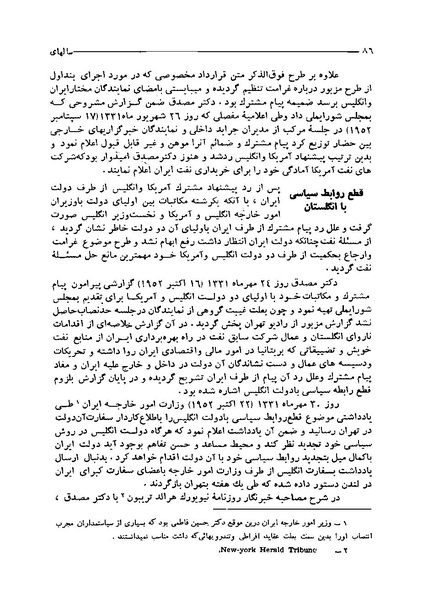 ۸۶ سالهای
علاوه بر طرح فوق‌الذکر متن قرارداد مخصوصی که در مورد اجرای بندا‌ول
از طرح مزبور درباره غرامت تنظیم گردیده و میبایستی بامضای نمایندگان مختارایران
وانگلیس برسد ضمیمه پیام مشترک بود . دکتر مصدق ضمن گزارش مشروحی که
بمجلس شورایملی داد وطی اعلامیهٔ مفصلی که روز ۲۶ شهریور ماه ۱۳۳۱ (۱۷ سپتامبر
۱۹۵۲) در جلسهٔ مرکب از مدیران جراید داخلی و نمایندگان خبرگزاریهای خارجی
بین حضار توزیع کرد پیام مشترک و ضمائم آنرا موهن و غیر قابل قبول اعلام نمود و
بدین ترتیب پیشنهاد آمریکا وانگلیس ردشد و هنوز دکترمصدق امیدوار بودکه‌شرکت
های نفت آمریکا آمادگی خود را برای خریداری نفت ایران اعلام نمایند .
قطع روابط سیاسی
با انگلستان
پس از رد پیشنهاد مشترک آمریکا وانگلیس از طرف دولت
ایران ، با آنکه یکرشته مکاتبات بین اولیای دولت باوزیران
امور خارجه انگلیس و آمریکا و نخست‌وزیر انگلیس صورت
گرفت و علل رد پیام مشترک از طرف ایران باولیای آن دو دولت خاطر نشان گردید ،
از مسئلهٔ نفت‌چنانکه دولت ایران انتظار داشت رفع ابهام نشد و طرح موضوع غرامت
وارجاع بحکمیت از طرف دو دولت انگلیس وآمریکا خود مهمترین مانع حل مسئلهٔ
نفت گردید .
دکتر مصدق روز ۲۴ مهرماه ۱۳۳۱ (۱۶ اکتبر ۱۹۵۲) گزارشی پیرامون پیام
مشترک و مکاتبات خود با اولیای دو دولت انگلیس و آمریکا برای تقدیم بمجلس
شورایملی تهیه نمود و چون بعلت غیبت گروهی از نمایندگان درجلسه حدنصاب‌حاصل
نشد گزارش مزبور از رادیو تهران پخش گردید . در آن گزارش خلاصه‌ای از اقدامات
ناروای انگلستان و عمال شرکت سابق نفت در راه بهره‌برداری ایران از منابع نفت
خویش و تضییقاتی که بریتانیا در امور مالی واقتصادی ایران روا داشته و تحریکات
ودسیسه های عمال و دست نشاندگان آن دولت در داخل و خارج علیه ایران و مفاد
پیام مشترک وعلل رد آن پیام از طرف ایران تشریح گردیده و در پایان گزارش بلزوم
قطع رابطه سیاسی بادولت انگلیس اشاره شده بود .
روز ۳۰ مهرماه ۱۳۳۱ (۲۲ اکتبر ۱۹۵۲) وزارت امور خارجه ایران ۱ طی
یادداشتی موضوع قطع‌روابط سیاسی بادولت انگلیس‌را باطلاع‌کاردار سفارت‌آن‌دولت
در تهران رسانید و ضمن آن یادداشت اعلام نمود که هرگاه دولت انگلیس در روش
سیاسی خود تجدید نظر کند و محیط مساعد و حسن تفاهم بوجود آید دولت ایران
باکمال میل بتجدید روابط سیاسی خود با آن دولت اقدام خواهد کرد . بدنبال ارسال
یادداشت بسفارت انگلیس از طرف وزارت امور خارجه باعضای سفارت کبرای ایران
در لندن دستور داده شده که طی یک هفته بتهران بازگردند .
در شرح مصاحبه خبرنگار روزنامهٔ نیویورک هرالد تریبون ۲ با دکتر مصدق ،
۱ – وزیر امور خارجه ایران درین موقع دکتر حسین فاطمی بود که بسیاری از سیاستمداران مجرب
انتصاب اورا بدین سمت بعلت عقاید افراطی وتندرویهائی‌که داشت مناسب نمیدانستند .
۲ – New-york Herald Tribune.